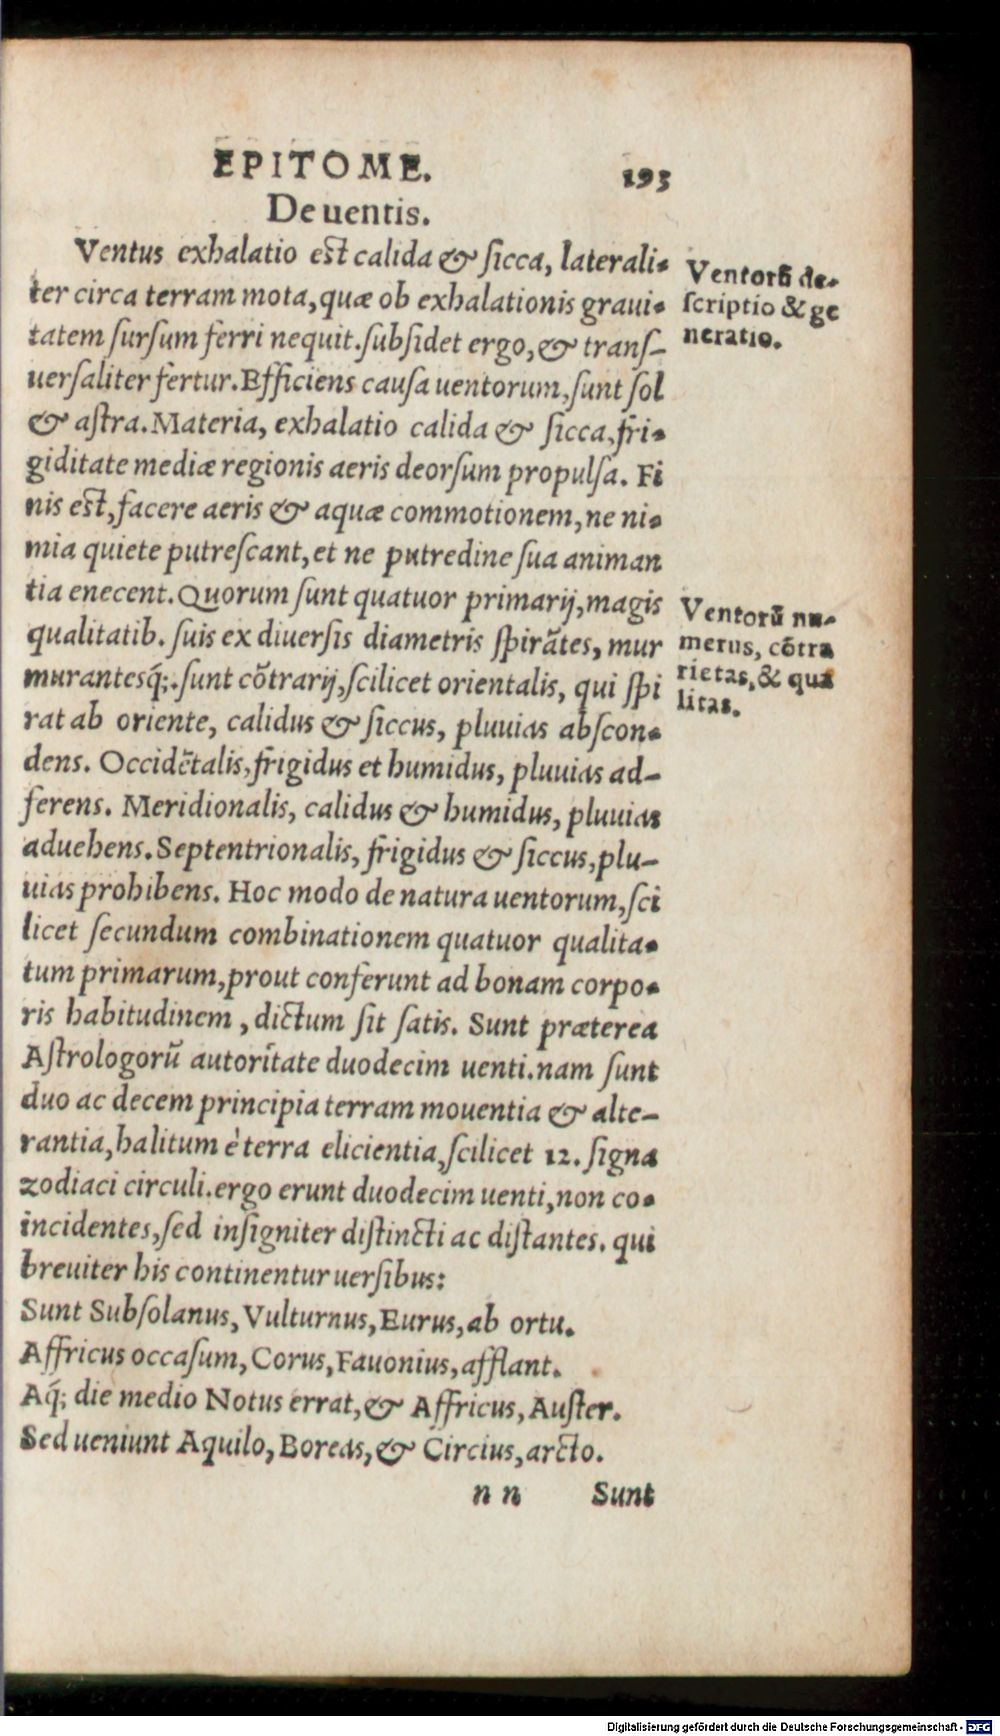 EPITOME. 193
De uentis.
Ventus exhalatio est calida & sicca, laterali-
ter circa terram mota, quæ ob exhalationis graui-
tatem sursum ferri nequit. subsidet ergo, & trans-
uersaliter fertur. Efficiens causa uentorum, sunt sol
& astra. Materia, exhalatio calida & sicca, fri-
giditate mediæ regionis aeris deorsum propulsa. Fi
nis est, facere aeris & aquæ commotionem, ne ni-
mia quiete putrescant, et ne putredine sua animan
tia enecent. Quorum sunt quatuor primarij, magis
qualitatib. suis ex diuersis diametris spirātes, mur
murantesq́;. sunt cōtrarij, scilicet orientalis, qui spi
rat ab oriente, calidus & siccus, pluuias abscon-
dens. Occidētalis, frigidus et humidus, pluuias ad-
ferens. Meridionalis, calidus & humidus, pluuias
aduehens. Septentrionalis, frigidus & siccus, plu-
uias prohibens. Hoc modo de natura uentorum, sci
licet secundum combinationem quatuor qualita-
tum primarum, prout conferunt ad bonam corpo-
ris habitudinem, dictum sit satis. Sunt præterea
Astrologorū autoritate duodecim uenti. nam sunt
duo ac decem principia terram mouentia & alte-
rantia, halitum è terra elicientia, scilicet 12. signa
zodiaci circuli. ergo erunt duodecim uenti, non co-
incidentes, sed insigniter distincti ac distantes. qui
breuiter his continentur uersibus:
Sunt Subsolanus, Vulturnus, Eurus, ab ortu.
Affricus occasum, Corus, Fauonius, afflant.
Aq́; die medio Notus errat, & Affricus, Auster.
Sed ueniunt Aquilo, Boreas, & Circius, arcto.
n n Sunt
Ventorū de-
scriptio & ge
neratio.
Ventorū nu-
merus, cōtra
rietas, & qua
litas.
Digitalisierung gefördert durch die Deutsche Forschungsgemeinschaft - DFG